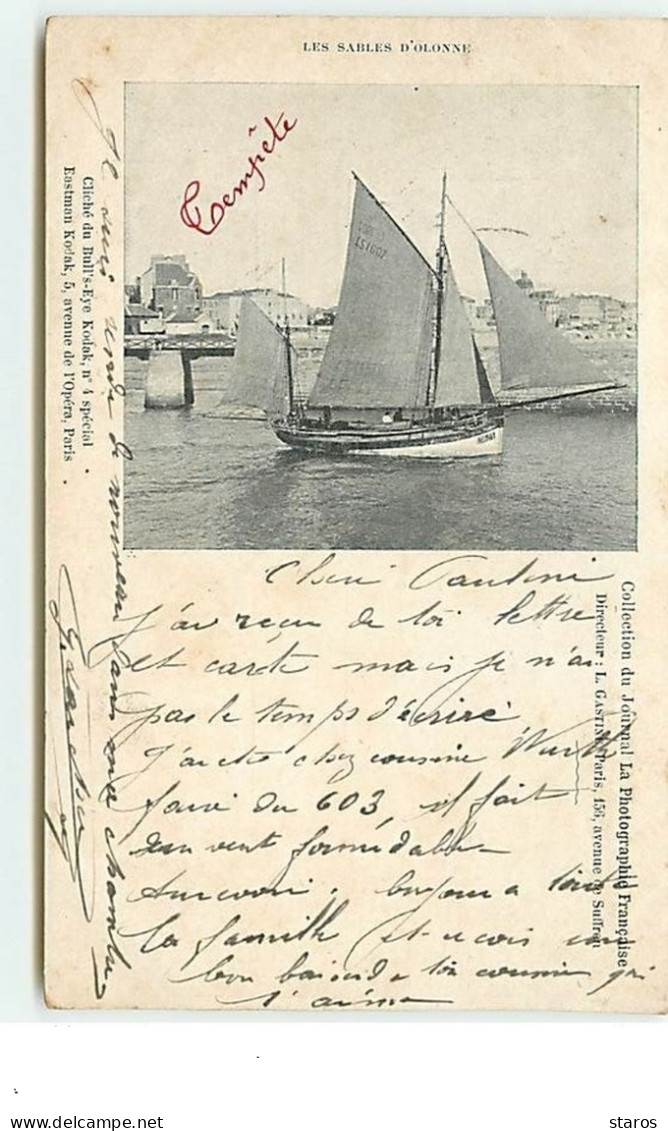 LES SABLES D'OLONNE
Tempête
Cliché du Bull's-Eye Kodak, n° 4 spécial .
Eastman Kodak, 5, avenue de l'Opéra, Paris .
Collection du Journal La Photographie Française
Directeur : L. GASTINE, Paris, 156, avenue de Suffren
J'ai reçu de toi lettre
et carte mais je n'ai
pas le temps d'écrire
chez cousine
faire du 603, il fait
un vent formidable
Au revoir. bonjour a toute
la famille et reçois un
bon baiser de ton cousin qui
t'aime
Je suis de nouveau dans ma chambre
staros
delcampe.net